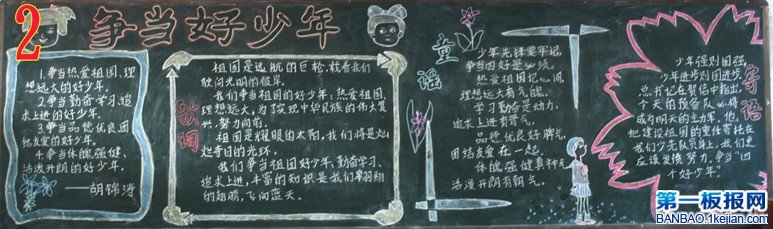 2
争当好少年
1.争当热爱祖国、理
想远大的好少年
2.争当勤奋学习、追
求上进的好少年
3.争当品德优良、团
结友爱的好少年
4.争当体魄强健、
活泼开朗的好少年
——胡锦涛
歌词
祖国是远航的巨轮,载着我们
驶向光明的彼岸。
我们争当祖国的好少年:热爱祖国、
理想远大,为了实现中华民族的伟大复
兴,努力向前。
祖国是耀眼的太阳,我们将是灿
烂夺目的光环。
我们争当祖国好少年、勤奋学习、
追求上进,丰富的知识是我们拿羽翔
的翅膀,飞向蓝天。
童谣
少年先锋要牢记,
争当四好是必须。
热爱祖国记心间,
理想远大有气魄。
学习勤奋是动力,
追求上进有骨气。
品德优良好脾气,
团结友爱在一起。
体魄强健真神气,
活泼开朗有朝气。
寄语
少年强则国强,
少年进步则国进步。
总书记在贺信中指出,
今天的预备队必将
成为明天的主力军。他
把建设祖国的重任寄托在
我们少先队员身上,我们更
应该发愤努力、争当“四
个好少年”!
第一板报网
BANBAO.1kejian.com